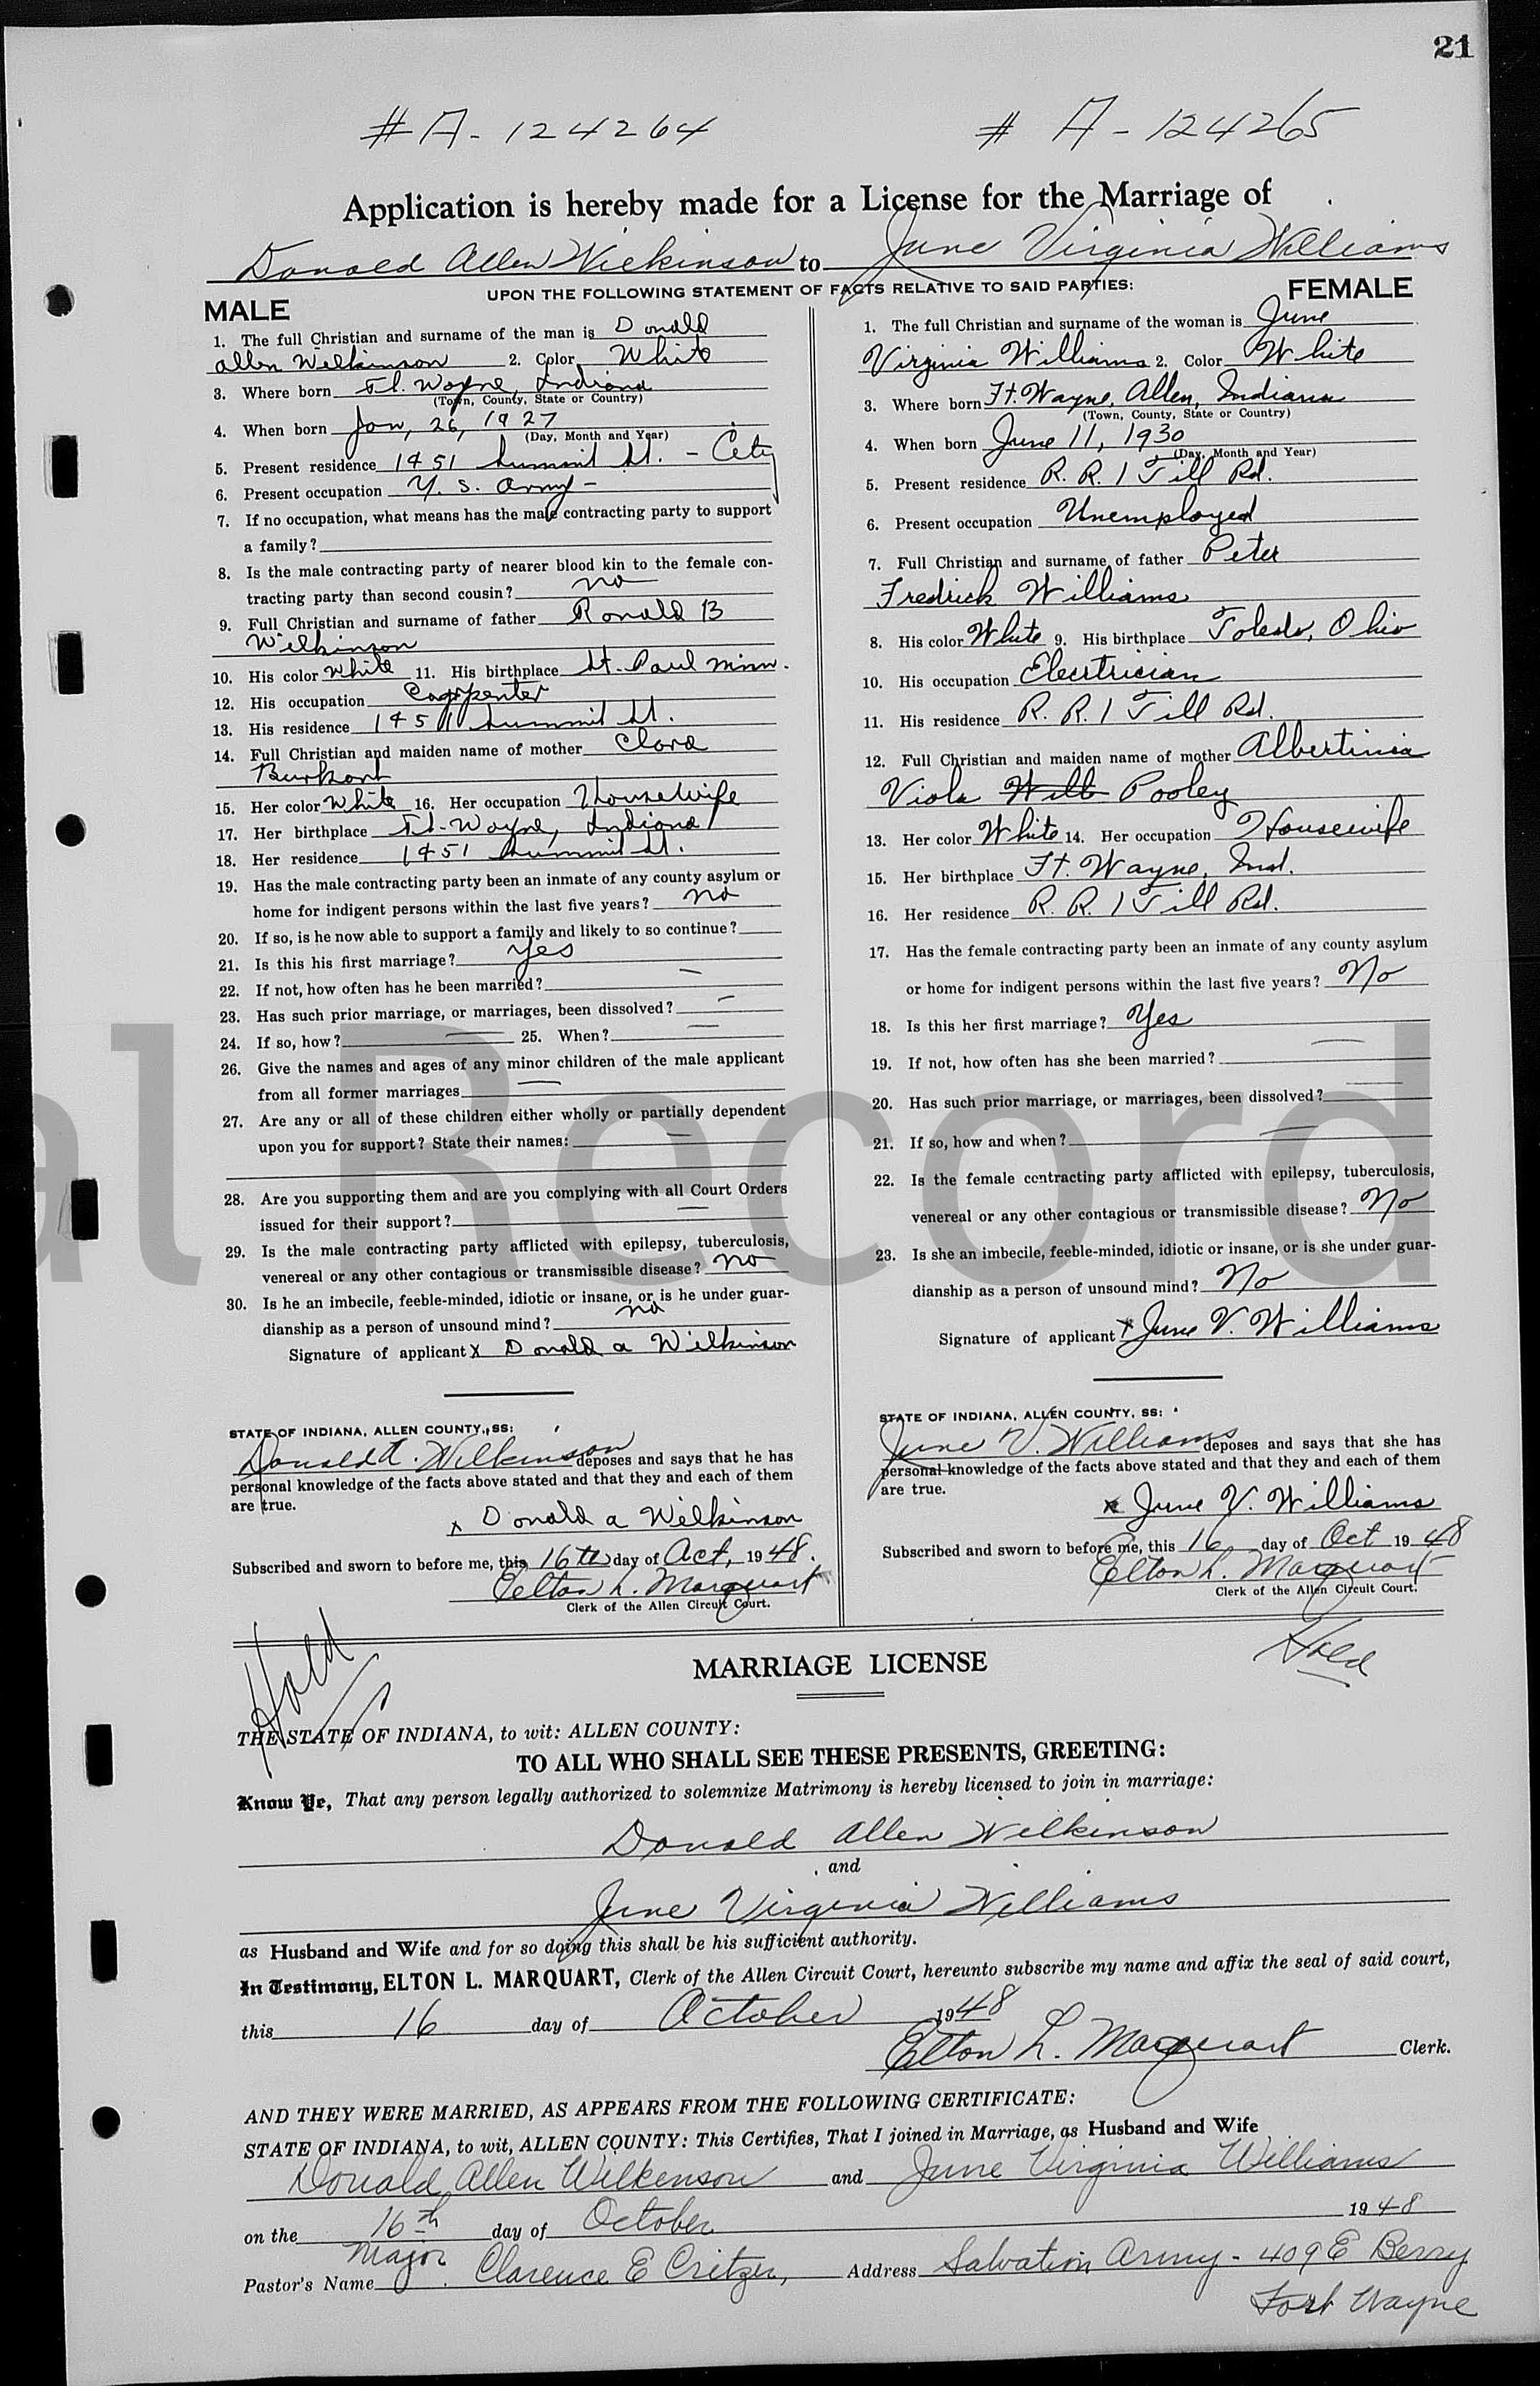 21
# A - 124264 # A - 124265
Application is hereby made for a License for the Marriage of
Donald Allen Wilkinson to June Virginia Williams
UPON THE FOLLOWING STATEMENT OF FACTS RELATIVE TO SAID PARTIES:
MALE
1. The full Christian and surname of the man is Donald
Allen Wilkinson 2. Color White
3. Where born Ft. Wayne, Indiana
(Town, County, State or Country)
4. When born Jan, 26, 1927
(Day, Month and Year)
5. Present residence 1451 Summit St. - City
6. Present occupation U. S. Army -
7. If no occupation, what means has the male contracting party to support
a family?
8. Is the male contracting party of nearer blood kin to the female con-
tracting party than second cousin? no
9. Full Christian and surname of father Ronald B
Wilkinson
10. His color White 11. His birthplace St. Paul Minn.
12. His occupation Carpenter
13. His residence 1451 Summit St.
14. Full Christian and maiden name of mother Clara
15. Her color White 16. Her occupation Housewife
17. Her birthplace Ft. Wayne, Indiana
18. Her residence 1451 Summit St.
19. Has the male contracting party been an inmate of any county asylum or
home for indigent persons within the last five years? no
20. If so, is he now able to support a family and likely to so continue?
21. Is this his first marriage? yes
22. If not, how often has he been married? —
23. Has such prior marriage, or marriages, been dissolved? —
24. If so, how? — 25. When? —
26. Give the names and ages of any minor children of the male applicant
from all former marriages —
27. Are any or all of these children either wholly or partially dependent
upon you for support? State their names: —
28. Are you supporting them and are you complying with all Court Orders
issued for their support? —
29. Is the male contracting party afflicted with epilepsy, tuberculosis,
venereal or any other contagious or transmissible disease? no
30. Is he an imbecile, feeble-minded, idiotic or insane, or is he under guar-
dianship as a person of unsound mind? no
Signature of applicant x Donald A Wilkinson
STATE OF INDIANA, ALLEN COUNTY, SS:
Donald A. Wilkinson deposes and says that he has
personal knowledge of the facts above stated and that they and each of them
are true.
x Donald A Wilkinson
Subscribed and sworn to before me, this 16th day of Oct, 1948.
Elton L. Marquart
Clerk of the Allen Circuit Court.
FEMALE
1. The full Christian and surname of the woman is June
Virginia Williams 2. Color White
3. Where born Ft. Wayne, Allen, Indiana
(Town, County, State or Country)
4. When born June 11, 1930
(Day, Month and Year)
5. Present residence R. R. 1 Till Rd.
6. Present occupation Unemployed
7. Full Christian and surname of father Peter
Fredrick Williams
8. His color White 9. His birthplace Toledo, Ohio
10. His occupation Electrician
11. His residence R. R. 1 Till Rd.
12. Full Christian and maiden name of mother Albertinia
Viola Will Pooley
13. Her color White 14. Her occupation Housewife
15. Her birthplace Ft. Wayne, Ind.
16. Her residence R. R. 1 Till Rd.
17. Has the female contracting party been an inmate of any county asylum
or home for indigent persons within the last five years? No
18. Is this her first marriage? Yes
19. If not, how often has she been married? —
20. Has such prior marriage, or marriages, been dissolved? —
21. If so, how and when? —
22. Is the female contracting party afflicted with epilepsy, tuberculosis,
venereal or any other contagious or transmissible disease? No
23. Is she an imbecile, feeble-minded, idiotic or insane, or is she under guar-
dianship as a person of unsound mind? No
Signature of applicant x June V. Williams
STATE OF INDIANA, ALLEN COUNTY, SS:
June V. Williams deposes and says that she has
personal knowledge of the facts above stated and that they and each of them
are true.
x June V. Williams
Subscribed and sworn to before me, this 16 day of Oct 1948
Elton L. Marquart
Clerk of the Allen Circuit Court.
al Record
Hold Hold
MARRIAGE LICENSE
THE STATE OF INDIANA, to wit: ALLEN COUNTY:
TO ALL WHO SHALL SEE THESE PRESENTS, GREETING:
Know Ye, That any person legally authorized to solemnize Matrimony is hereby licensed to join in marriage:
Donald Allen Wilkinson
and
June Virginia Williams
as Husband and Wife and for so doing this shall be his sufficient authority.
In Testimony, ELTON L. MARQUART, Clerk of the Allen Circuit Court, hereunto subscribe my name and affix the seal of said court,
this 16 day of October 1948
Elton L. Marquart Clerk.
AND THEY WERE MARRIED, AS APPEARS FROM THE FOLLOWING CERTIFICATE:
STATE OF INDIANA, to wit, ALLEN COUNTY: This Certifies, That I joined in Marriage, as Husband and Wife
Donald Allen Wilkenson and June Virginia Williams
on the 16th day of October 1948
Pastor's Name Major Clarence E Critzer, Address Salvation Army - 409 E Berry
Fort Wayne